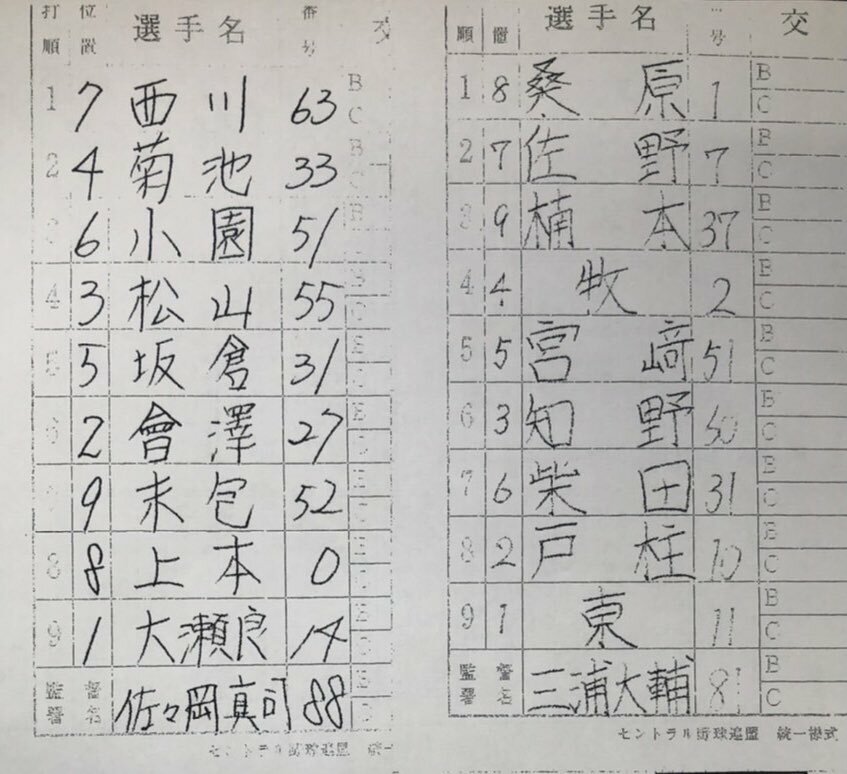 打順 位置 選手名 番号 交
1 7 西川 63 B C
2 4 菊池 33 B C
3 6 小園 51 B C
4 3 松山 55 B C
5 5 坂倉 31 B C
6 2 會澤 27 B C
7 9 末包 52 B C
8 8 上本 0 B C
9 1 大瀬良 14 B C
監督署名 佐々岡真司 88 B C
セントラル野球連盟 統一
順 置 選手名 号 交
1 8 桑原 1 B C
2 7 佐野 7 B C
3 9 楠本 37 B C
4 4 牧 2 B C
5 5 宮﨑 51 B C
6 3 知野 60 B C
7 6 柴田 31 B C
8 2 戸柱 10 B C
9 1 東 11 B C
監督署名 三浦大輔 81 B C
セントラル野球連盟 統一様式